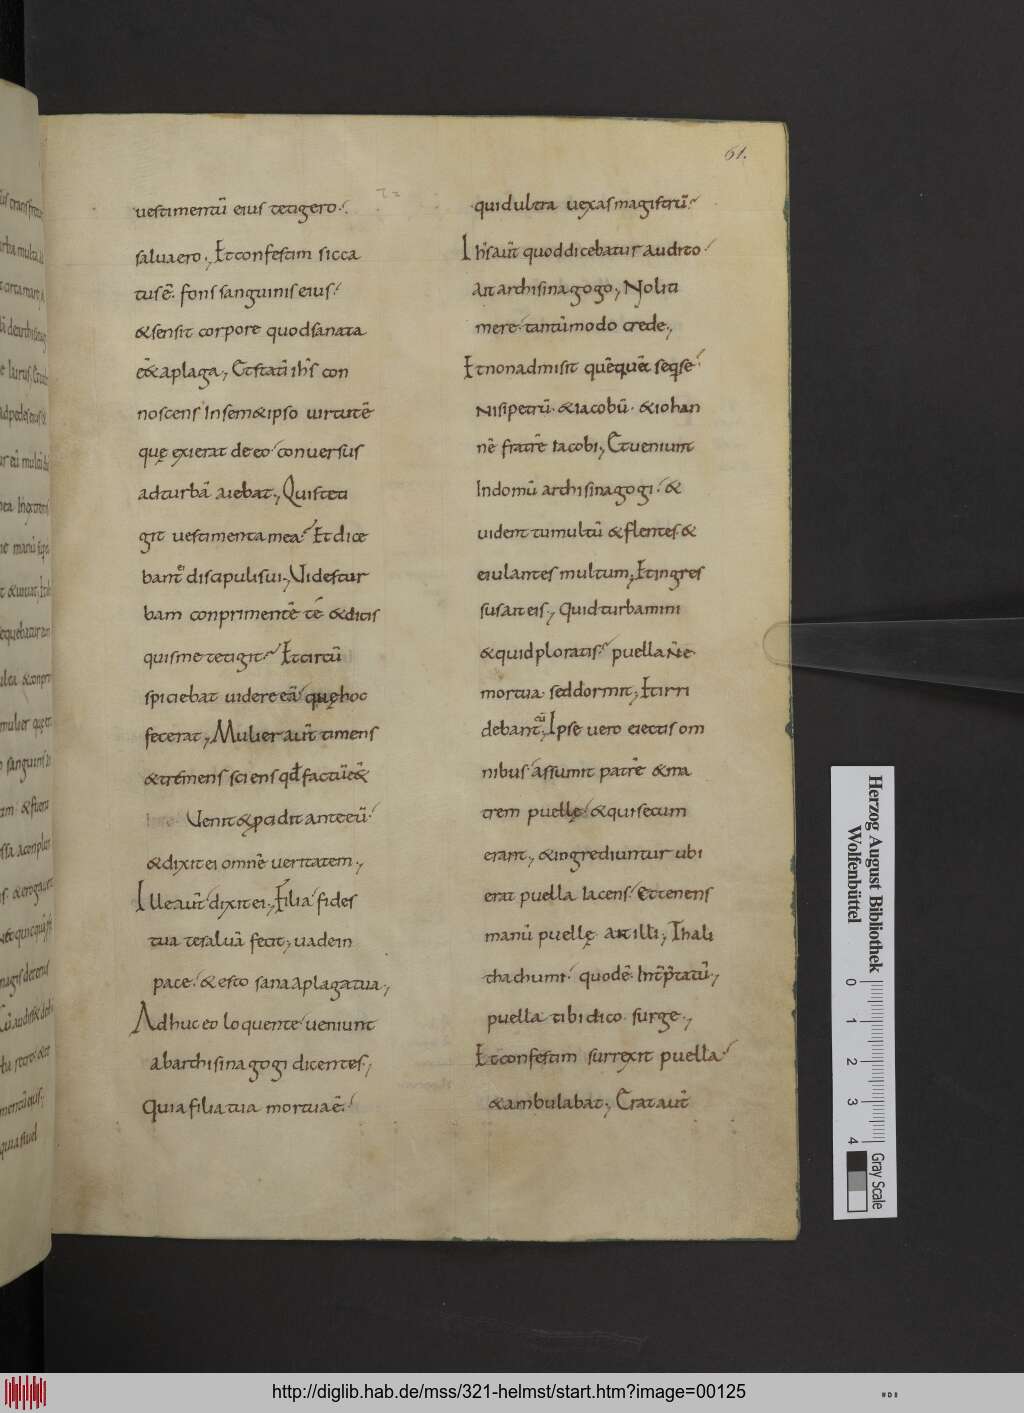 61.
uestimentū eius tetigero.
salua ero., Et confestim sicca
tus ē. fons sanguinis eius.
& sensit corpore quod sanata
ē & a plaga., Et statī ih̄s con
noscens In sem&ipso uirtutē
quę exierat de eo conuersus
ad turbā aiebat., Quis teti
git uestimenta mea? Et dice
bant ei discipuli sui., Vides tur
bam conprimentē té & dicis
quis me tetigit? Et circū
spiciebat uidere eā quę hoc
fecerat., Mulier aut̄ timens
& tremens sciens qd̄ factū ē &
Venit & pcidit ante eū.
& dixit ei omnē ueritatem.,
Ille aut̄ dixit ei., Filia fides
tua te saluā fecit., uade in
pace. & esto sana a plaga tua.,
Adhuc eo loquente ueniunt
ab archisinagogi dicentes.,
Quia filia tua mortua ē.
quid ultra uexas magistrū?
Ih̄s aut̄ quod dicebatur audito
ait archisinagogo., Noli ti
mere. tantūmodo crede.,
Et non admisit quēquā seq̄ se
Nisi petrū. & Iacobū. & iohan
nē fratrē Iacobi., Et ueniunt
In domū archisinagogi. &
uident tumultū & flentes. &
eiulantes multum., Et ingres
sus ait eis., Quid turbamini
& quid ploratis? puella Nē
mortua sed dormit., Et irri
debant eū., Ipse uero eiectis om
nibus assumit patrē & ma
trem puellę. & qui secum
erant., & ingrediuntur ubi
erat puella Iacens. Et tenens
manū puellę ait illi., Thali
tha chumi. quod ē. Int̄p̄tatū.,
puella tibi dico surge.,
Et confestim surrexit puella.
& ambulabat., Erat aut̄
Herzog August Bibliothek
Wolfenbüttel
0 1 2 3 4
Gray Scale
http://diglib.hab.de/mss/321-helmst/start.htm?image=00125